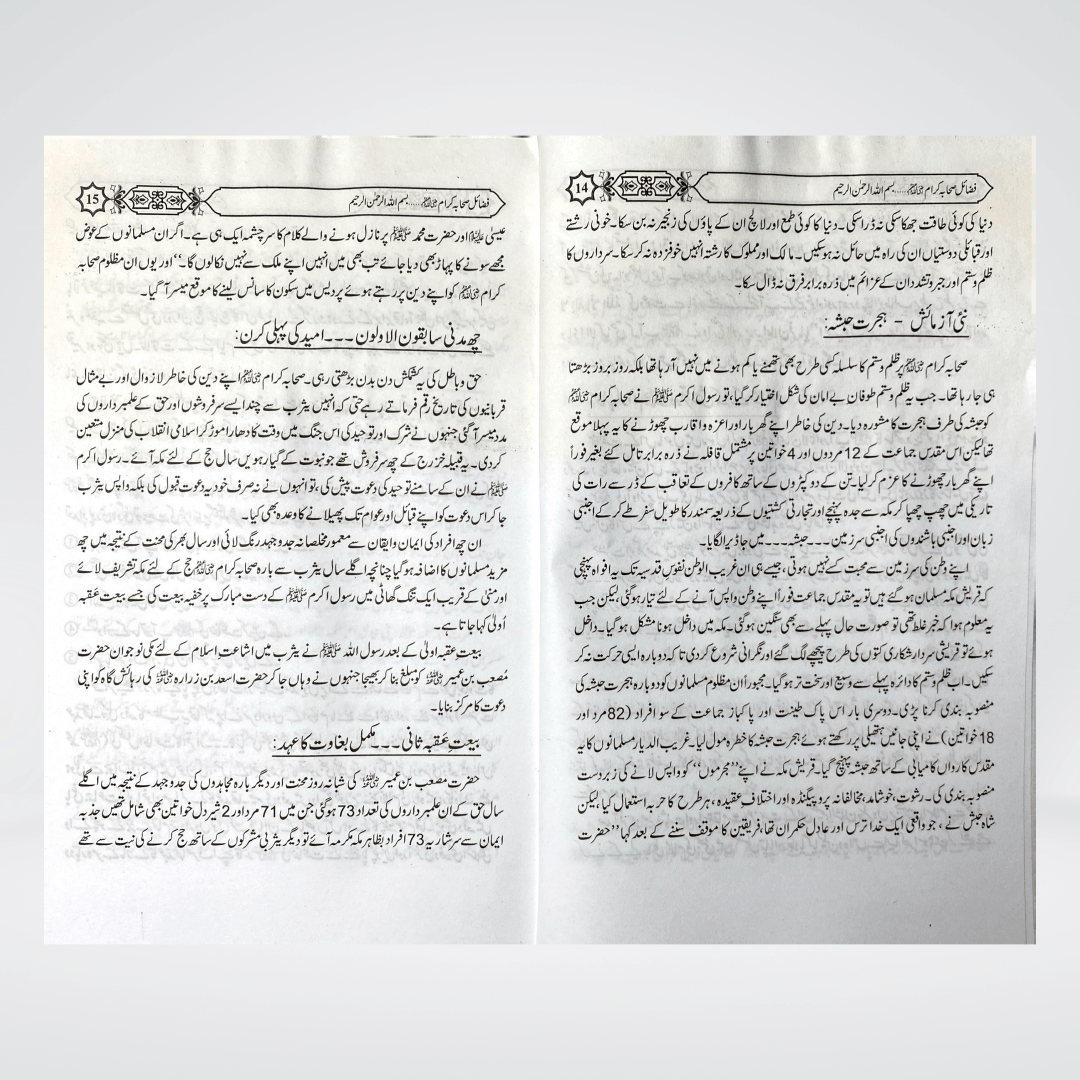 فضائل صحابہ کرام رضی اللہ عنہم......بسم اللہ الرحمٰن الرحیم
14
دنیا کی کوئی طاقت جھکا سکی نہ ڈرا سکی۔ دنیا کا کوئی طمع اور لالچ ان کے پاؤں کی زنجیر نہ بن سکا۔ خونی رشتے
اور قبائلی دوستیاں ان کی راہ میں حائل نہ ہو سکیں۔ مالک اور مملوک کا رشتہ انہیں خوفزدہ نہ کر سکا۔ سرداروں کا
ظلم وستم اور جبر وتشدد ان کے عزائم میں ذرہ برابر فرق نہ ڈال سکا۔
نئی آزمائش - ہجرت حبشہ:
صحابہ کرام رضی اللہ عنہم پر ظلم وستم کا سلسلہ کسی طرح بھی تھمنے یا کم ہونے میں نہیں آرہا تھا بلکہ روز بروز بڑھتا
ہی جا رہا تھا۔ جب یہ ظلم وستم طوفان بے اماں کی شکل اختیار کر گیا، تو رسول اکرم ﷺ نے صحابہ کرام رضی اللہ عنہم
کو حبشہ کی طرف ہجرت کا مشورہ دیا۔ دین کی خاطر اپنے گھر بار اور اعزہ واقارب چھوڑنے کا یہ پہلا موقع
تھا لیکن اس مقدس جماعت کے 12 مردوں اور 4 خواتین پر مشتمل قافلہ نے ذرہ برابر تامل کئے بغیر فوراً
اپنے گھر بار چھوڑنے کا عزم کر لیا۔ تن کے دو کپڑوں کے ساتھ کافروں کے تعاقب کے ڈر سے رات کی
تاریکی میں چھپ چھپا کر مکہ سے جدہ پہنچے اور تجارتی کشتیوں کے ذریعہ سمندر کا طویل سفر طے کر کے اجنبی
زبان اور اجنبی باشندوں کی اجنبی سرزمین ۔۔۔ حبشہ ۔۔۔ میں جا ڈیرا لگایا۔
اپنے وطن کی سرزمین سے محبت کسے نہیں ہوتی، جیسے ہی ان غریب الوطن نفوس قدسیہ تک یہ افواہ پہنچی
کہ قریش مکہ مسلمان ہو گئے ہیں تو یہ مقدس جماعت فوراً اپنے وطن واپس آنے کے لئے تیار ہوگئی، لیکن جب
یہ معلوم ہوا کہ خبر غلط تھی تو صورت حال پہلے سے بھی سنگین ہوگئی۔ مکہ میں داخل ہونا مشکل ہو گیا۔ داخل
ہوئے تو قریشی سردار شکاری کتوں کی طرح پیچھے لگ گئے اور نگرانی شروع کردی تاکہ دوبارہ ایسی حرکت نہ کر
سکیں۔ اب ظلم وستم کا دائرہ پہلے سے وسیع اور سخت تر ہو گیا۔ مجبوراً ان مظلوم مسلمانوں کو دوبارہ ہجرت حبشہ کی
منصوبہ بندی کرنا پڑی۔ دوسری بار اس پاک طینت اور پاکباز جماعت کے سو افراد (82 مرد اور
18 خواتین) نے اپنی جانیں ہتھیلی پر رکھتے ہوئے ہجرت حبشہ کا خطرہ مول لیا۔ غریب الدیار مسلمانوں کا یہ
مقدس کارواں کامیابی کے ساتھ حبشہ پہنچ گیا۔ قریش مکہ نے اپنے ’’مجرموں‘‘ کو واپس لانے کی زبردست
منصوبہ بندی کی۔ رشوت، خوشامد، مخالفانہ پروپیگنڈہ اور اختلافِ عقیدہ، ہر طرح کا حربہ استعمال کیا، لیکن
شاہ حبش نے، جو واقعی ایک خدا ترس اور عادل حکمران تھا، فریقین کا موقف سننے کے بعد کہا ’’حضرت
فضائل صحابہ کرام رضی اللہ عنہم......بسم اللہ الرحمٰن الرحیم
15
عیسیٰ علیہ السلام اور حضرت محمد ﷺ پر نازل ہونے والے کلام کا سرچشمہ ایک ہی ہے۔ اگر ان مسلمانوں کے عوض
مجھے سونے کا پہاڑ بھی دیا جائے تب بھی میں انہیں اپنے ملک سے نہیں نکالوں گا۔‘‘ اور یوں ان مظلوم صحابہ
کرام رضی اللہ عنہم کو اپنے دین پر رہتے ہوئے پردیس میں سکون کا سانس لینے کا موقع میسر آ گیا۔
چھ مدنی سابقون الاولون ۔۔۔ امید کی پہلی کرن:
حق وباطل کی یہ کشمکش دن بدن بڑھتی رہی۔ صحابہ کرام رضی اللہ عنہم اپنے دین کی خاطر لازوال اور بے مثال
قربانیوں کی تاریخ رقم فرماتے رہے حتی کہ انہیں یثرب سے چند ایسے سرفروشوں اور حق کے علمبرداروں کی
مدد میسر آگئی جنہوں نے شرک اور توحید کی اس جنگ میں وقت کا دھارا موڑ کر اسلامی انقلاب کی منزل متعین
کردی۔ یہ قبیلہ خزرج کے چھ سرفروش تھے جو نبوت کے گیارہویں سال حج کے لئے مکہ آئے۔ رسول اکرم
ﷺ نے ان کے سامنے توحید کی دعوت پیش کی، تو انہوں نے نہ صرف خود یہ دعوت قبول کی بلکہ واپس یثرب
جا کر اس دعوت کو اپنے قبائل اور عوام تک پھیلانے کا وعدہ بھی کیا۔
ان چھ افراد کی ایمان وایقان سے معمور مخلصانہ جدوجہد رنگ لائی اور سال بھر کی محنت کے نتیجہ میں چھ
مزید مسلمانوں کا اضافہ ہو گیا چنانچہ اگلے سال یثرب سے بارہ صحابہ کرام رضی اللہ عنہم حج کے لئے مکہ تشریف لائے
اور منیٰ کے قریب ایک تنگ گھاٹی میں رسول اکرم ﷺ کے دست مبارک پر خفیہ بیعت کی جسے بیعت عقبہ
اُولیٰ کہا جاتا ہے۔
بیعت عقبہ اولیٰ کے بعد رسول اللہ ﷺ نے یثرب میں اشاعت اسلام کے لئے مکی نوجوان حضرت
مُصعب بن عمیر رضی اللہ عنہ کو مبلغ بنا کر بھیجا جنہوں نے وہاں جا کر حضرت اسعد بن زرارہ رضی اللہ عنہ کی رہائش گاہ کو اپنی
دعوت کا مرکز بنایا۔
بیعتِ عقبہ ثانی ۔۔۔ مکمل بغاوت کا عہد:
حضرت مصعب بن عمیر رضی اللہ عنہ کی شبانہ روز محنت اور دیگر بارہ مجاہدوں کی جدوجہد کے نتیجہ میں اگلے
سال حق کے ان علمبرداروں کی تعداد 73 ہوگئی جن میں 71 مرد اور 2 شیردل خواتین بھی شامل تھیں جذبہ
ایمان سے سرشار یہ 73 افراد بظاہر مکہ مکرمہ آئے تو دیگر یثربی مشرکوں کے ساتھ حج کرنے کی نیت سے تھے